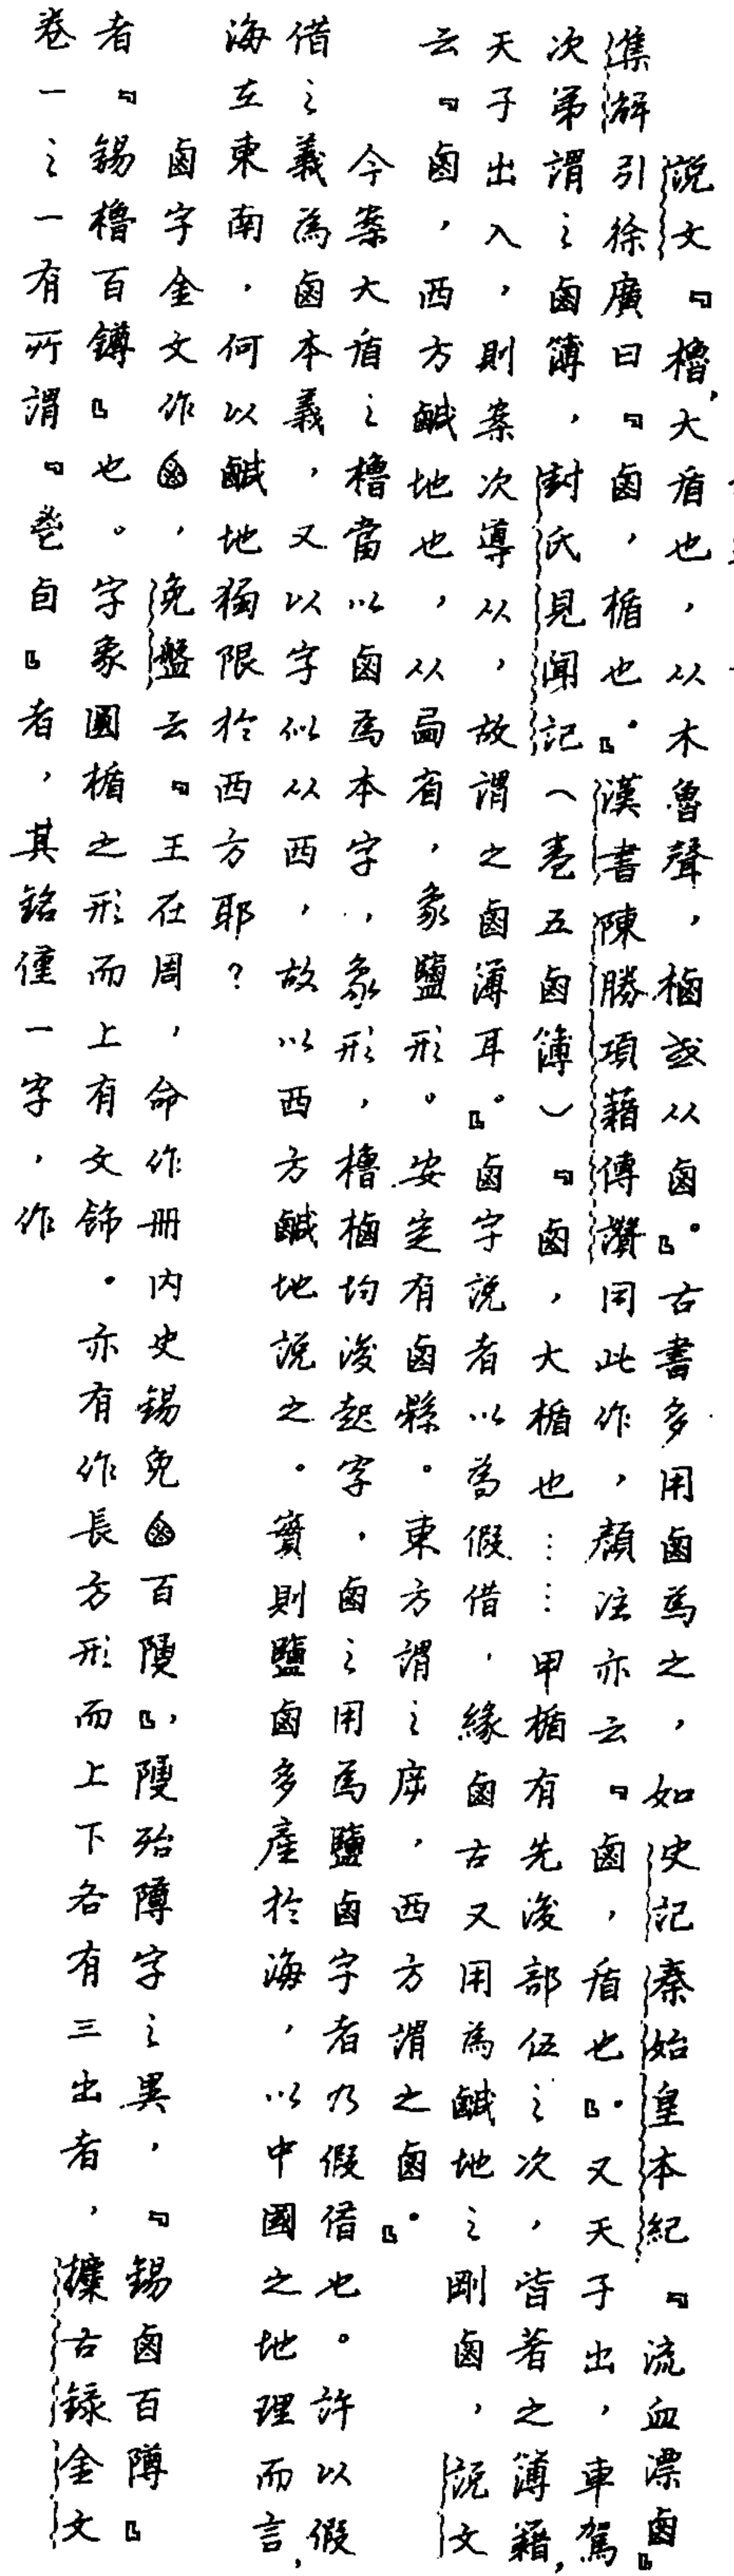 說文『櫓，大盾也，从木魯聲，樐或从鹵。』古書多用鹵為之，如史記秦始皇本紀『流血漂鹵』
集解引徐廣曰『鹵，楯也。』漢書陳勝項藉傳讚同此作，顏注亦云『鹵，盾也』。又天子出，車駕
次第謂之鹵簿，封氏見聞記（卷五鹵簿）『鹵，大楯也……甲楯有先後部伍之次，皆著之簿籍，
天子出入，則案次導从，故謂之鹵薄耳。』鹵字說者以為假借，緣鹵古又用為鹹地之剛鹵，說文
云『鹵，西方鹹地也，从㢴省，象鹽形。安定有鹵縣。東方謂之㡿，西方謂之鹵。』
今案大盾之櫓當以鹵為本字，象形，櫓樐均後起字，鹵之用為鹽鹵字者乃假借也。許以假
借之義為鹵本義，又以字似从西，故以西方鹹地說之。實則鹽鹵多產於海，以中國之地理而言，
海在東南，何以鹹地獨限於西方耶？
鹵字金文作，免盤云『王在周，命作冊內史錫免百隞』，隞殆䧹字之異，『錫鹵百䧹』
者『錫櫓百鐏』也。字象圓楯之形而上有文飾。亦有作長方形而上下各有三出者，攈古録金文
卷一之一有所謂『卣』者，其銘僅一字，作